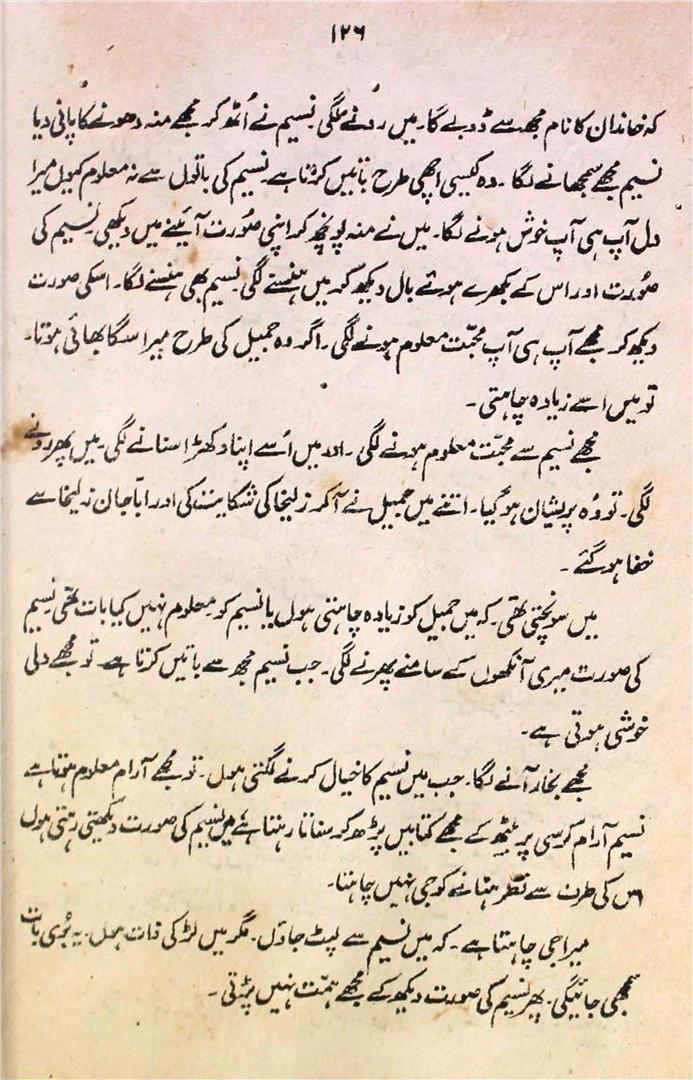 ۱۲۶
کہ خاندان کا نام مجھ سے ڈوبے گا۔ میں رونے لگی نسیم نے اُٹھ کر مجھے منہ دھونے کا پانی دیا
نسیم مجھے سمجھانے لگا۔ وہ کیسی اچھی طرح باتیں کرتا ہے نسیم کی باتوں سے نہ معلوم کیوں میرا
دل آپ ہی آپ خوش ہونے لگا۔ میں نے منہ پونچھ کر اپنی صُورت آئینے میں دیکھی نسیم کی
صُورت اور اس کے بکھرے ہوئے بال دیکھ کر میں ہنسنے لگی نسیم بھی ہنسنے لگا۔ اسکی صورت
دیکھ کر مجھے آپ ہی آپ محبّت معلوم ہونے لگی۔ اگر وہ جمیل کی طرح میرا سگا بھائی ہوتا۔
تو میں اسے زیادہ چاہتی۔
مجھے نسیم سے محبّت معلوم ہونے لگی۔ اور میں اُسے اپنا دکھڑا سنانے لگی۔ میں پھر رونے
لگی۔ تو وُہ پریشان ہو گیا۔ اتنے میں جمیل نے آ کر زلیخا کی شکایت کی اور ابّا جان زلیخا سے
خفا ہو گئے۔
میں سونچتی تھی۔ کہ میں جمیل کو زیادہ چاہتی ہوں یا نسیم کو معلوم نہیں کیا بات تھی نسیم
کی صورت میری آنکھوں کے سامنے پھرنے لگی۔ جب نسیم مجھ سے باتیں کرتا ہے۔ تو مجھے دلی
خوشی ہوتی ہے۔
مجھے بخار آنے لگا۔ جب میں نسیم کا خیال کرنے لگتی ہوں۔ تو مجھے آرام معلوم ہوتا ہے
نسیم آرام کرسی پر بیٹھ کے مجھے کتابیں پڑھ کر سناتا رہتا ہے میں نسیم کی صورت دیکھتی رہتی ہوں
اس کی طرف سے نظر ہٹانے کو جی نہیں چاہتا۔
میرا جی چاہتا ہے۔ کہ میں نسیم سے لپٹ جاؤں۔ مگر میں لڑکی ذات ہوں۔ یہ بُری بات
سمجھی جائیگی۔ پھر نسیم کی صورت دیکھ کے مجھے ہمّت نہیں پڑتی۔